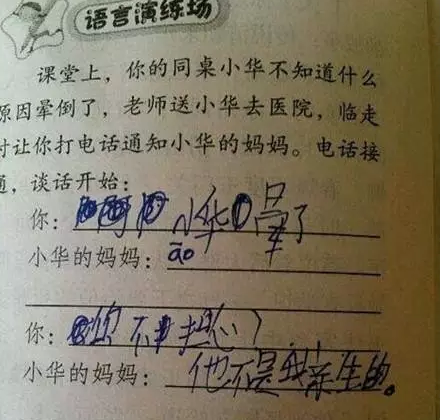 语言演练场
课堂上，你的同桌小华不知道什么
原因晕倒了，老师送小华去医院，临走
时让你打电话通知小华的妈妈。电话接
通，谈话开始：
你：小华晕了
小华的妈妈：āo
你：您不担心
小华的妈妈：他不是我亲生的。